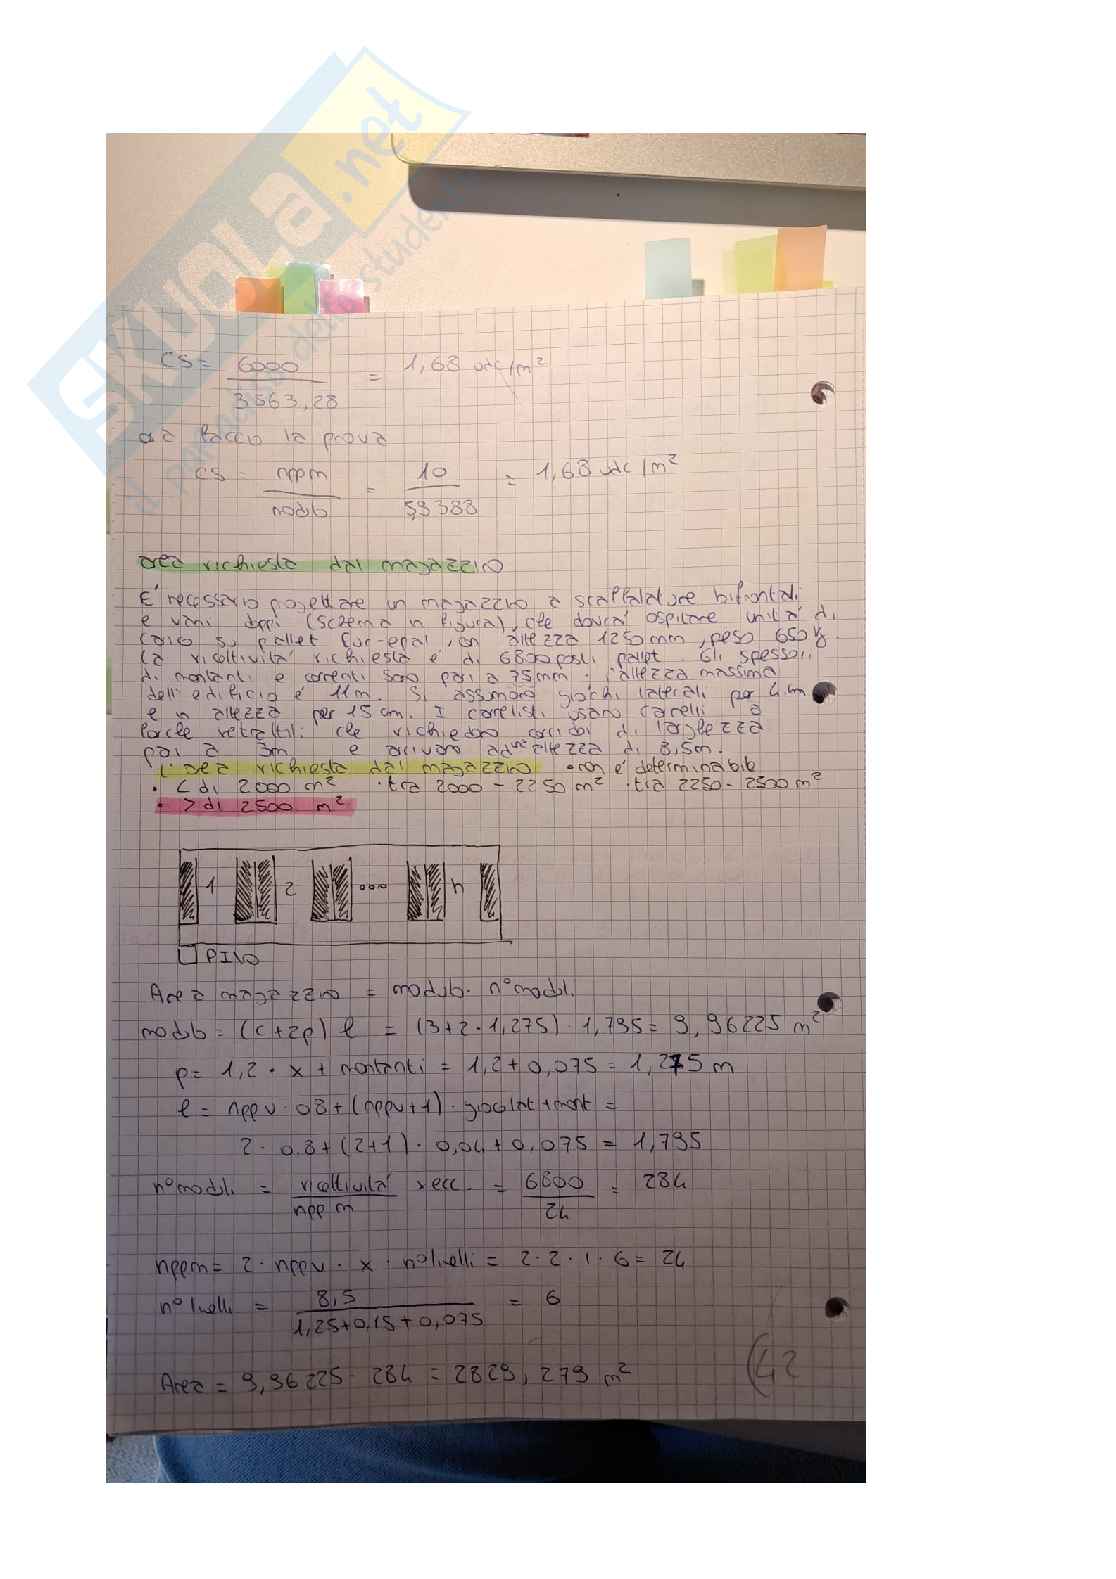 SKUOLA.net
Il paradiso dello studente
CS = 6000 / 3563,28 = 1,68 udc/m²
faccio la prova
CS = nppm / modulo = 10 / 5,9388 = 1,68 udc/m²
area richiesta dal magazzino
E' necessario progettare un magazzino a scaffalature bifrontali
e vani doppi (schema in figura), che dovrà ospitare unità di
carico su pallet Eur-epal, con altezza 1250mm, peso 650 kg
La ricettività richiesta è di 6800 posti pallet. Gli spessori
di montanti e correnti sono pari a 75mm. l'altezza massima
dell'edificio è 11m. Si assumono giochi laterali per 4cm
e in altezza per 15cm. I carrellisti usano carrelli a
forche retrattili che richiedono corridoi di larghezza
pari a 3m e arrivano ad un'altezza di 8,5m.
L'area richiesta dal magazzino • non è determinabile
• < di 2000 m² • tra 2000 - 2250 m² • tra 2250 - 2500 m²
• > di 2500 m²
1 2 ••• n
PI/O
Area magazzino = modulo · n° moduli
modulo = (c+2p) l = (3+2·1,275)·1,795 = 9,96225 m²
p = 1,2 · x + montanti = 1,2+0,075 = 1,275 m
l = nppv · 0,8 + (nppv+1) · giocolat + mont =
2 · 0,8 + (2+1) · 0,04 + 0,075 = 1,795
n° moduli = ricettività / nppm = 6800 / 24 = 284
nppm = 2 · nppv · x · n°livelli = 2 · 2 · 1 · 6 = 24
n° livelli = 8,5 / 1,25+0,15+0,075 = 6
Area = 9,96225 · 284 = 2829,279 m²
42